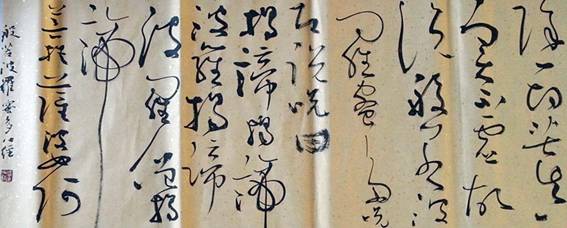 除一切苦真
實不虛故
說般若波
羅蜜多咒
即說咒曰
揭諦揭諦
波羅揭諦
波羅僧揭
諦
菩提薩婆訶
般若波羅蜜多心經